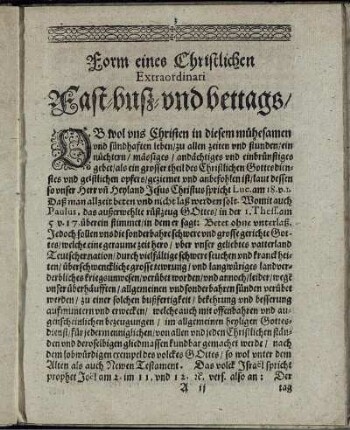 3
Form eines Christlichen
Extraordinari
Fast/buß/vnd bettags/
OB wol vns Christen in diesem mühesamen
vnd sündhafften leben/zu allen zeiten vnd stunden/ein
nüchtern/ mäesiges / andächtiges vnd einbrünstiges
gebet/als ein grosser theil des Christlichen Gottesdien-
stes vnd geistlichen opfers/geziemet vnd anbefohlen ist/laut dessen
so vnser Herr vñ Heyland Jesus Christus spricht Luc. am 18. v. 1.
Daß man allzeit beten vnd nicht laß werden solt. Womit auch
Paulus, das außerwehlte rüstzeug GOttes/ in der 1. Thess. am
5 v. 17. überein stimmet/in dem er sagt: Betet ohne vnterlaß.
Jedoch sollen vns die sonderbahre schwere vnd grosse gerichte Got-
tes/welche eine geraume zeit hero / über vnser geliebtes vatterland
Teutscher nation/durch vielfältige schwere seuchen vnd kranckhei-
ten/überschwenckliche grosse tewrung / vnd langwüriges landver-
derbliches kriegsunwesen/verübet worden/vnd annoch/leider/wegen
vnser überhäufften/allgemeinen vnd sonderbahren sünden verübet
werden/ zu einer solchen bußfertigkeit / bekehrung vnd besserung
auffmuntern vnd erwecken/ welche auch mit offenbahren vnd au-
genscheinlichen bezeugungen / im allgemeinen heyligen Gottes-
dienst/ für jedermenniglichen/von allen vnd jeden Christlichen stän-
den vnd deroselbigen gliedmassen kundbar gemacht werde / nach
dem lobwürdigen exempel des volckes GOttes/ so wol vnter dem
Alten als auch Newen Testament. Das volck Jsrael spricht
prophet Joël am 2. im 11. vnd 12. ꝛc. vers. also an: Der
A ij tag